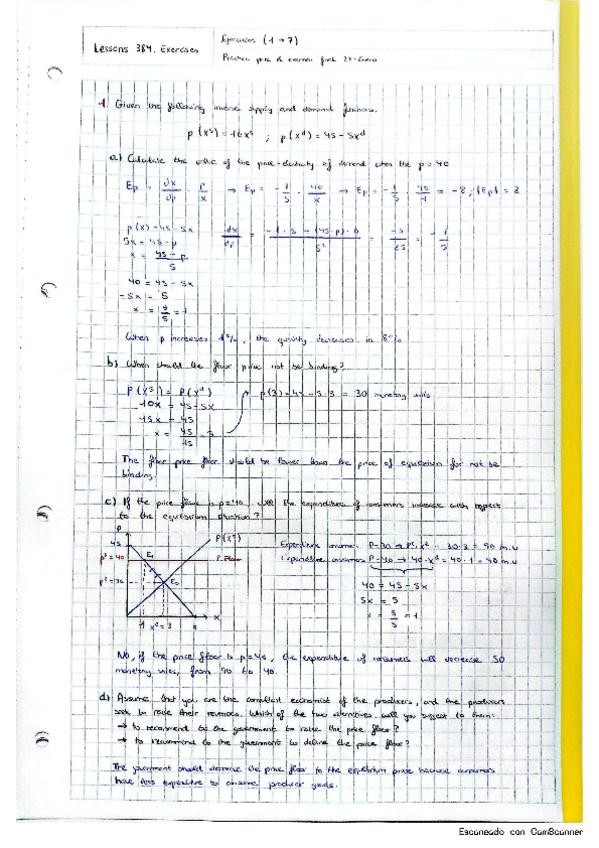 Lessons 3&4. Exercises
Exercises (1→7)
1. Given the following inverse supply and demand functions.
p(xˢ)=10xˢ ; p(xᵈ)=45-5xᵈ
a) Calculate the value of the price-elasticity of demand when the p=40
Ep = ∂x/∂p · p/x → Ep = -1/5 · 40/x → Ep = -1/5 · 40/1 = -8, |Ep| = 8
p(x)=45-5x
5x = 45-p
x = 45-p/5
dx/dp = -1·5-(45-p)·0/5² = -5/25 = -1/5
40 = 45-5x
-5x = 5
x = 5/5 = 1
When p increases 1%, the quantity decreases in 8%
b) When should the floor price not be binding?
p(xˢ) = p(xᵈ)
10x = 45-5x
15x = 45
x = 45/15 = 3
p(3)=45-5·3 = 30 monetary units
The floor price should be lower than the price of equilibrium for not be
binding.
c) If the price floor is p=40, will the expenditure of consumers increase with respect
to the equilibrium situation?
P
P(xˢ)
45
p² = 40
E₁
P. Floor
E₀
1
x² = 3
9
x
Expenditure consumers P=30 → Pᵉ·xᵉ = 30·3 = 90 m.u
Expenditure consumers P=40 → 40·xᵈ = 40·1 = 40 m.u
40 = 45-5x
5x = 5
x = 5/5 = 1
No, if the price floor is p=40, the expenditure of consumers will decrease 50
monetary units, from 90 to 40.
d) Assume that you are the consultant economist of the producers, and the producers
seek to raise their revenues. Which of the two alternatives will you suggest to them:
→ to recommend to the government to raise the price floor?
→ to recommend to the government to define the price floor?
The government should the price floor to the equilibrium price because consumers
have expenditure to consume producer goods.
Escaneado con CamScanner